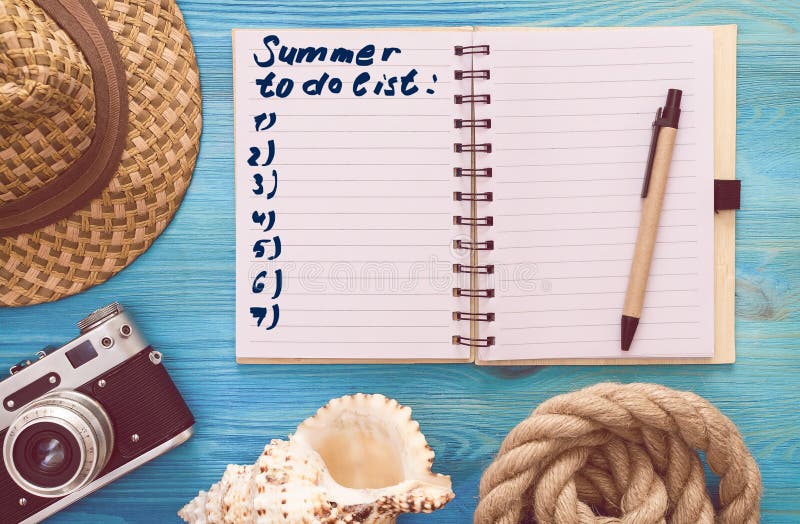 Summer
to do list:
1)
2)
3)
4)
5)
6)
7)
dreamstime